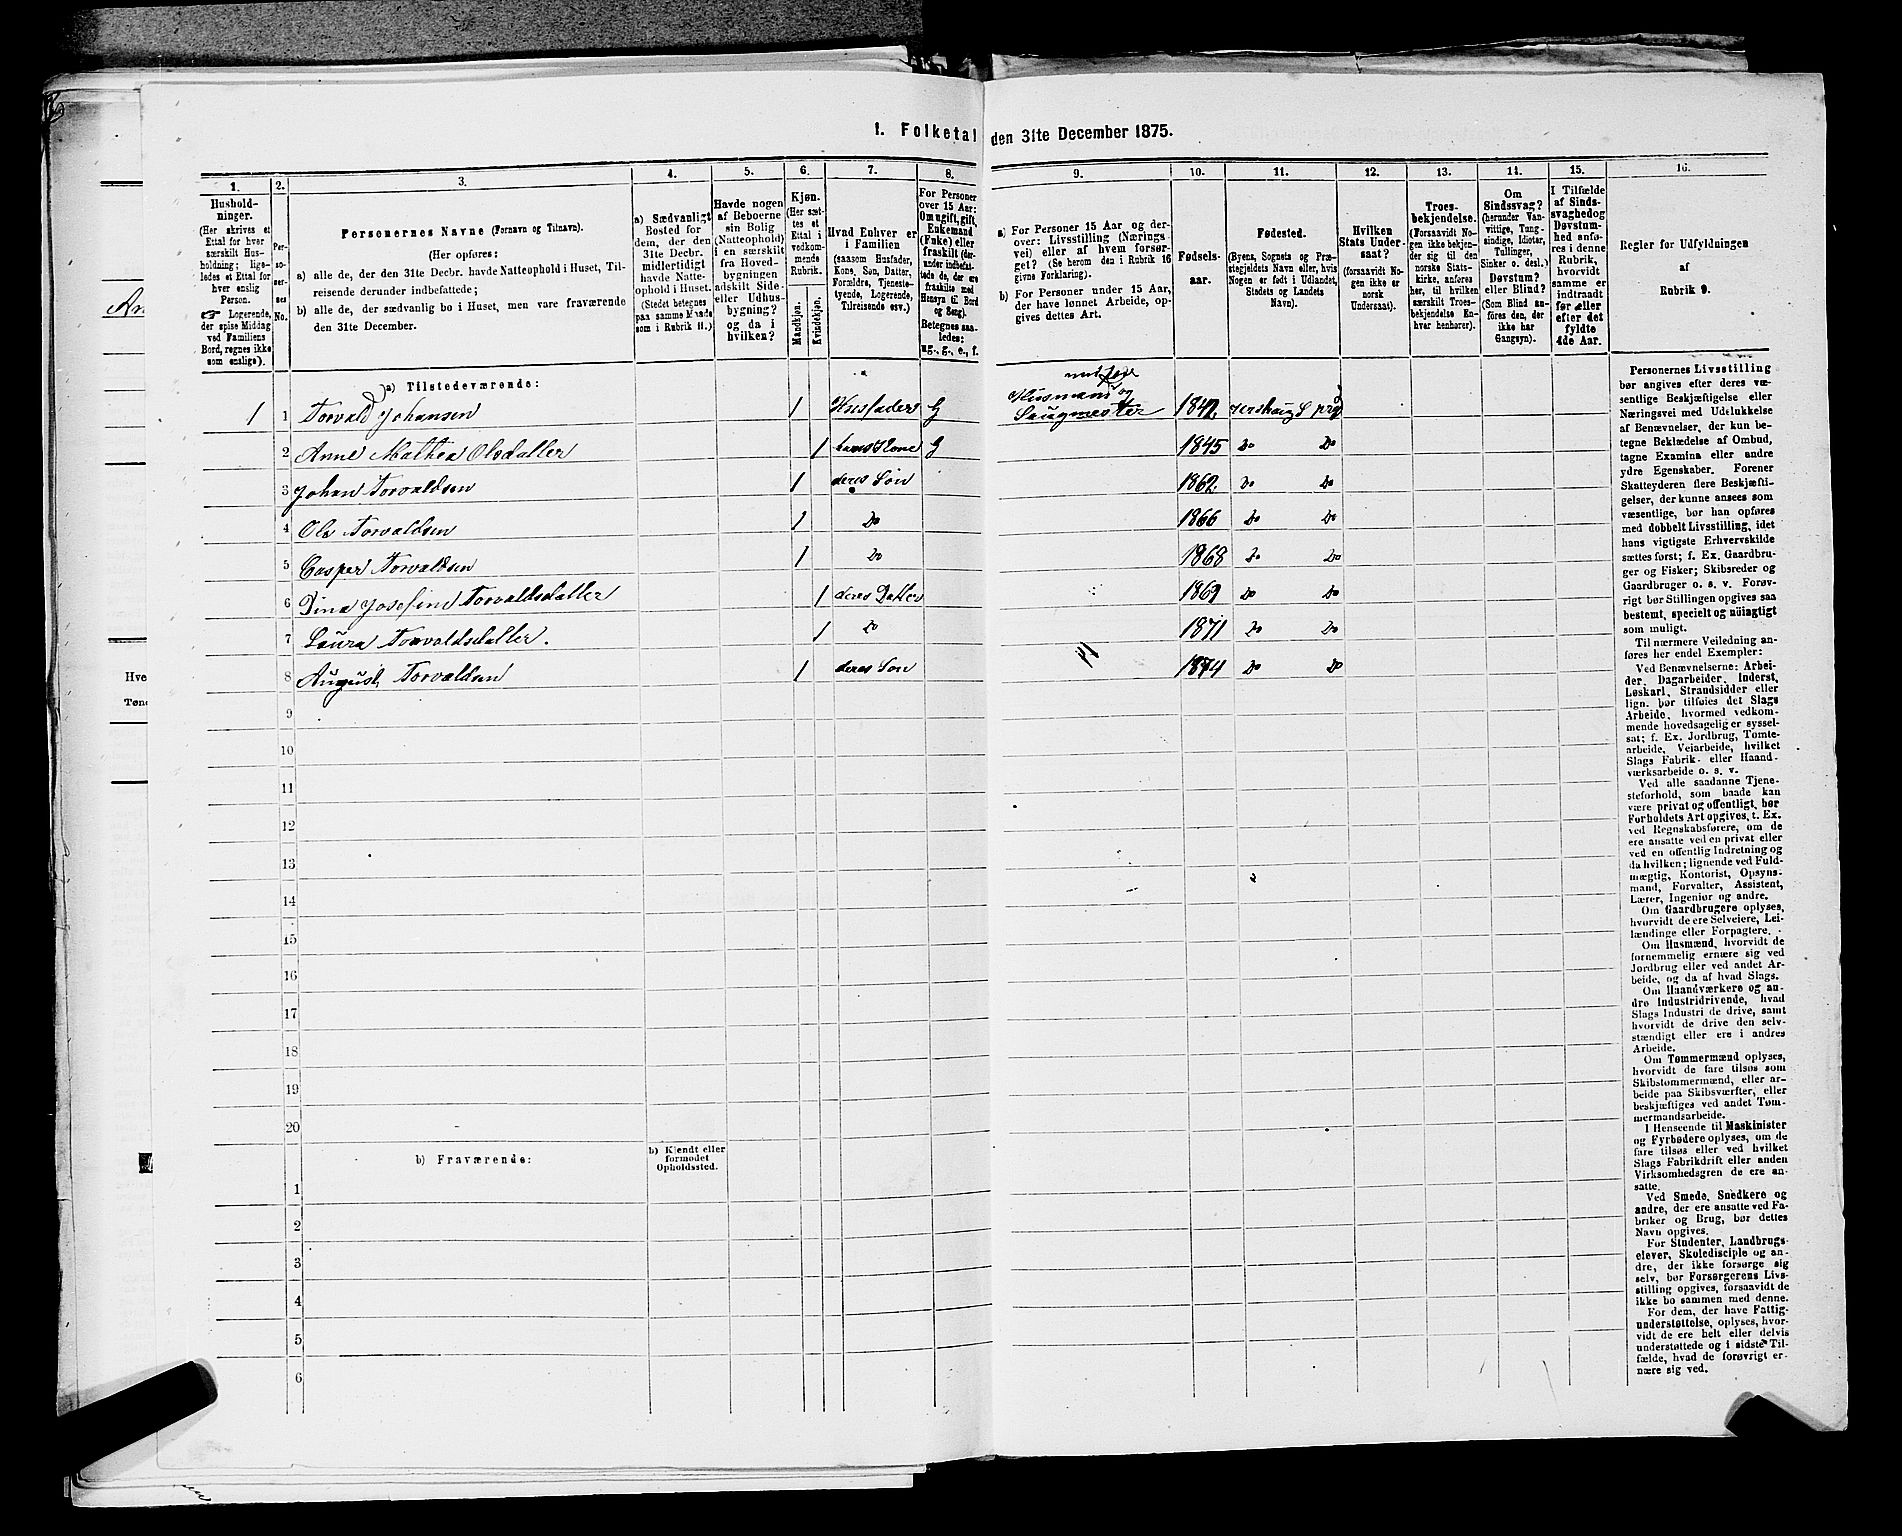 1. Folketal den 31te December 1875.
1. 2. 3. 4. 5. 6. 7. 8. 9. 10. 11. 12. 13. 14. 15. 16.
Hushold-
ninger.
(Her skrives et
Ettal for hver
særskilt Hus-
holdning; lige-
ledes et Ettal for
hver enslig
Person.
☞ Logerende,
der spise Middag
ved Familiens
Bord, regnes ikke
som enslige).
Per-
so-
ner-
nes
No.
Personernes Navne (Fornavn og Tilnavn).
(Her opføres:
a) alle de, der den 31te Decbr. havde Natteophold i Huset, Til-
reisende derunder indbefattede;
b) alle de, der sædvanlig bo i Huset, men vare fraværende
den 31te December.
a) Sædvanligt
Bosted for
dem, der den
31te Decbr.
midlertidigt
havde Natte-
ophold i Huset.
(Stedet betegnes
paa samme Maade
som i Rubrik 11.)
Havde nogen
af Beboerne
sin Bolig
(Natteophold)
i en særskilt
fra Hoved-
bygningen
adskilt Side-
eller Udhus-
bygning?
og da i
hvilken?
Kjøn.
(Her sæt-
tes et
Ettal i
vedkom-
mende
Rubrik.
Mandkjøn.
Kvindekjøn.
Hvad Enhver er
i Familien
(saasom Husfader,
Kone, Søn, Datter,
Forældre, Tjeneste-
tyende, Logerende,
Tilreisende osv.)
For Personer
over 15 Aar:
Om ugift, gift,
Enkemand
(Enke) eller
fraskilt (der-
under indbefat-
tede de, der ere
fraskilte med
Hensyn til Bord
og Seng).
Betegnes saa-
ledes:
ug., g., e., f.
a) For Personer 15 Aar og der-
over: Livsstilling (Nærings-
vei) eller af hvem forsør-
get? (Se herom den i Rubrik 16
givne Forklaring).
b) For Personer under 15 Aar,
der have lønnet Arbeide, op-
gives dettes Art.
Fødsels-
aar.
Fødested.
(Byens, Sognets og Præ-
stegjeldets Navn eller, hvis
Nogen er født i Udlandet,
Stedets og Landets
Navn).
Hvilken
Stats Under-
saat?
(forsaavidt No-
gen ikke er
norsk
Undersaat).
Troes-
bekjendelse.
(Forsaavidt No-
gen ikke bekjen-
der sig til den
norske Stats-
kirke, anføres
her, til hvilken
særskilt Troes-
bekjendelse En-
hver henhører).
Om
Sindssvag?
(herunder Van-
vittige, Tung-
sindige, Idioter,
Tullinger,
Sinker o. desl.)
Døvstum?
eller Blind?
(Som Blind an-
føres den, der
ikke har
Gangsyn).
I Tilfælde
af Sinds-
svaghed og
Døvstum-
hed anfø-
res i denne
Rubrik,
hvorvidt
samme er
indtraadt
før eller
efter det
fyldte
4de Aar.
Regler for Udfyldningen
af
Rubrik 9.
a) Tilstedeværende:
1 1 Torvald Johansen 1 Husfader G Husmand med Jord og Saugmester 1842
2 Anne Mathea Olsdatter 1 hans Kone G 1845 Do Do
3 Johan Torvaldsen 1 deres Søn 1862 Do Do
4 Ole Torvaldsen 1 Do 1866 Do Do
5 Casper Torvaldsen 1 Do 1868 Do Do
6 Dina Josefine Torvaldsdatter 1 deres Datter 1869 Do Do
7 Laura Torvaldsdatter. 1 Do 1871 Do Do
8 August Torvaldsen 1 deres Søn 1874 Do Do
9
10
11
12
13
14
15
16
17
18
19
20
b) Fraværende:
b) Kjendt eller
formodet
Opholdssted.
1
2
3
4
5
6
Personernes Livsstilling
bør angives efter deres væ-
sentlige Beskjæftigelse eller
Næringsvei med Udelukkelse
af Benævnelser, der kun be-
tegne Beklædelse af Ombud,
tagne Examina eller andre
ydre Egenskaber. Forener
Skatteyderen flere Beskjæfti-
gelser, der kunne ansees som
væsentlige, bør han opføres
med dobbelt Livsstilling, idet
hans vigtigste Erhvervskilde
sættes først; f. Ex. Gaardbru-
ger og Fisker; Skibsreder og
Gaardbruger o. s. v. Forøv-
rigt bør Stillingen opgives saa
bestemt, specielt og nöiagtigt
som muligt.
Til nærmere Veiledning an-
føres her endel Exempler:
Ved Benævnelserne: Arbei-
der, Dagarbeider, Inderst,
Løskarl, Strandsidder eller
lign. bør tilføies det Slags
Arbeide, hvormed vedkom-
mende hovedsagelig er syssel-
sat; f. Ex. Jordbrug, Tomte-
arbeide, Veiarbeide, hvilket
Slags Fabrik- eller Haand-
værksarbeide o. s. v.
Ved alle saadanne Tjene-
steforhold, som baade kan
være privat og offentligt, bør
Forholdets Art opgives, t. Ex.
ved Regnskabsførere, om de
ere ansatte ved en privat eller
ved en offentlig Indretning og
da hvilken; lignende ved Fuld-
mægtig, Kontorist, Opsyns-
mand, Forvalter, Assistent,
Lærer, Ingeniør og andre.
Om Gaardbrugere oplyses,
hvorvidt de ere Selveiere, Lei-
lændinge eller Forpagtere.
Om Husmænd, hvorvidt de
fornemmelig ernære sig ved
Jordbrug eller ved andet Ar-
beide, og da af hvad Slags.
Om Haandværkere og an-
dre Industridrivende, hvad
Slags Industri de drive, samt
hvorvidt de drive den selv-
stændigt eller ere i andres
Arbeide.
Om Tømmermænd oplyses,
hvorvidt de fare tilsøs som
Skibstømmermænd, eller ar-
beide paa Skibsværfter, eller
beskjæftiges ved andet Tøm-
mermandsarbeide.
I Henseende til Maskinister
og Fyrbødere oplyses, om de
fare tilsøs eller ved hvilket
Slags Fabrikdrift eller anden
Virksomhedsgren de ere an-
satte.
Ved Smede, Snedkere og
andre, der ere ansatte ved Fa-
briker og Brug, bør dettes
Navn opgives.
For Studenter, Landbrugs-
elever, Skoledisciple og an-
dre, der ikke forsørge sig
selv, bør Forsørgerens Livs-
stilling opgives, forsaavidt de
ikke bo sammen med denne.
For dem, der have Fattig-
understøttelse, oplyses, hvor-
vidt de ere helt eller delvis
understøttede og i sidste Til-
fælde, hvad de forøvrigt er-
nære sig ved.